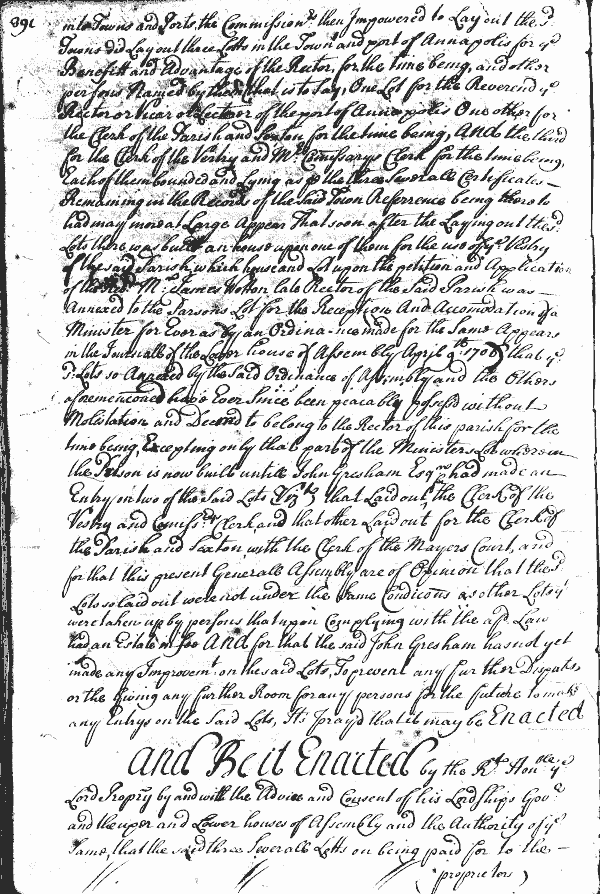 391
into Towns and Ports the Commissionrs then Impowered to Lay out the sd
Towns did Lay out three Lotts in the Town and port of Annapolis for ye
Benefitt and Advantage of the Rector, for the time being, and other
persons Named by them that is to Say, One Lot for the Reverend ye
Rector or Vicar of the port of Annapolis One other for
the Clerk of the Parish and Sexton for the time being, And the third
for the Clerk of the Vestry and Mr Comissarys Clerk for the time being,
Each of them bounded and Lying as p the three Severall Certificates
Remaining in the Records of the Said Town Referrence being thereto
had may more at Large Appear That soon after the Laying out the sd
Lots there was built an house upon one of them for the use of ye Vestry
of the said Parish, which house and Lot upon the petition and Application
of the Mr James Wotton late Rector of the Said Parish was
Annexed to the Parsons Lot for the Reception And Accomodation of a
Minister for Ever as by an Ordinance made for the Same Appears
in the Journall of the Lower house of Assembly April 9th 1708 that ye
sd Lots so Annexed by the Said Ordinance of Assembly and the Others
aforemenconed have Ever Since been peacably possesd without
Molestation and Deemed to belong to the Rector of this parish for the
time being, Excepting only that part of the Ministers Lot whereon
the Prison is now built untill John Gresham Esqr had made an
Entry on two of the Said Lots Vizt that Laid out the Clerk of the
Vestry and Comissrs Clerk, and that other Laid out for the Clerk of
the Parish and Sexton with the Clerk of the Mayors Court, and
for that this present Generall Assembly are of Opinion that the sd
Lots so laid out were not under the Same Condicons as other Lots yt
were taken up by persons that upon Complying with the afd Law
had an Estate in fee And for that the said John Gresham has not yet
made any Improvemt on the said Lots, To prevent any further Disputes
or the Giving any further Room for any persons for the future to make
any Entrys on the Said Lots, It's prayd that it may be Enacted
And Be it Enacted by the Rt Honble ye
Lord Propry by and with the Advice and Consent of his Lordships Govr
and the uper and Lower houses of Assembly and the Authority of ye
Same, that the said three Severall Lotts on being paid for to the
proprietors